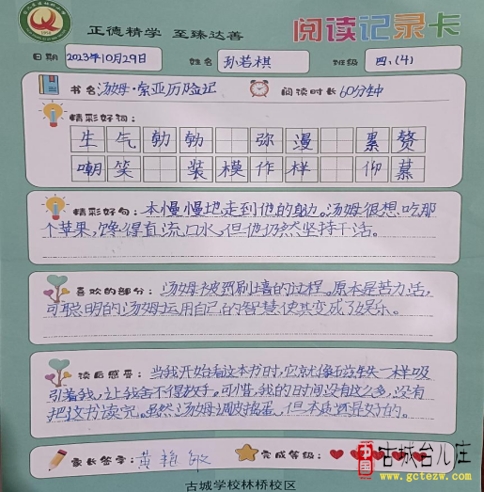 正德精学 至臻达善
阅读记录卡
日期 2023年10月29日 姓名 孙若棋 班级 四、(4)
书名 汤姆·索亚历险记 阅读时长 60分钟
精彩好词:
生气勃勃 弥漫 累赘
嘲笑 装模作样 仰慕
精彩好句: 本慢慢地走到他的身边。汤姆很想吃那
个苹果,馋得直流口水,但他仍然坚持干活。
喜欢的部分: 汤姆被罚刷墙的过程。原本是苦力活,
可聪明的汤姆运用自己的智慧使其变成了娱乐。
读后感受: 当我开始看这本书时,它就像磁铁一样吸
引着我,让我舍不得放手。可惜,我的时间没有这么多,没有
把这书读完。虽然汤姆调皮捣蛋,但本质还是好的。
家长签字: 黄艳敏 完成等级:
古城学校林桥校区
中国 古城台儿庄
www.gctezw.com